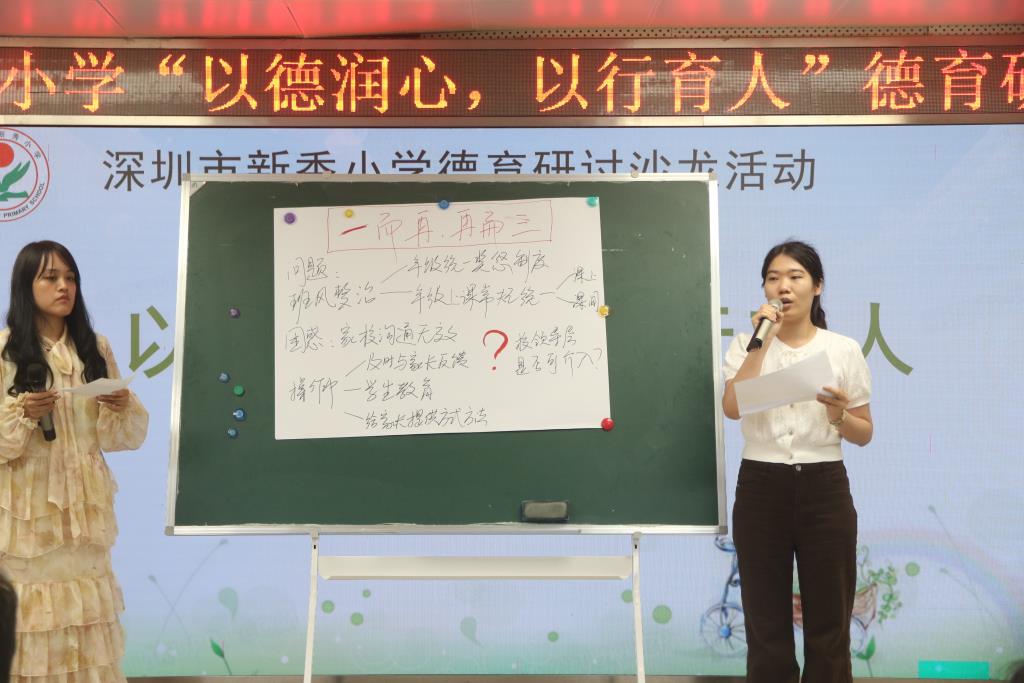 小学“以德润心，以行育人”德育研
PRIMARY SCHOOL
深圳市新秀小学德育研讨沙龙活动
以
人
一而再,再而三
问题:
年级统一奖惩制度
班风整治
年级上课常规统一
课上
课间
困惑:家校沟通无效
?
校领导层
是否可介入?
及时与家长反馈
学生教育
给家长提供方式方法